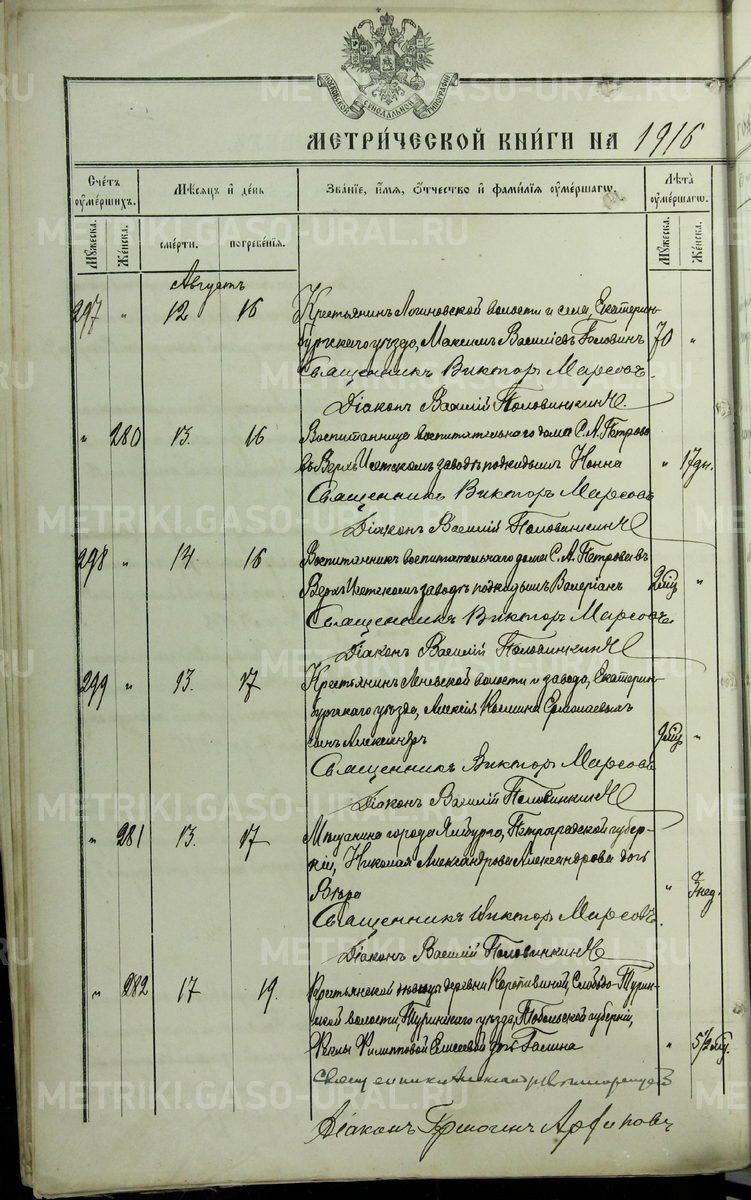 МОСКОВСКОЙ СѴНОДАЛЬНОЙ ТИПОГРАФІИ
МЕТРИ́ЧЕСКОЙ КНИ́ГИ НА 1916
Сче́тъ ᲂу҆ме́ршихъ.
Мѣ́сяцъ и҆ де́нь
Зва́нїе, и҆́мѧ, ѻ҆́тчество и҆ фами́лїѧ ᲂу҆ме́ршагѡ.
Лѣ́та ᲂу҆ме́ршагѡ.
Мꙋ́жеска.
Же́нска.
сме́рти.
погребе́нїѧ.
Мꙋ́жеска.
Же́нска.
Августъ
297 " 12 16 Крестьянинъ Логиновской волости и села, Екатерин-
бургскаго уѣзда, Максимъ Василіевъ Половинъ 70 "
Священникъ Викторъ Марсовъ.
Діаконъ Василій Половинкинъ.
" 280 13. 16 Воспитанница воспитательнаго дома С. А. Петрова
въ Верхъ Исетскомъ заводѣ подкидышъ Нонна " 17 дн.
Священникъ Викторъ Марсовъ
Діаконъ Василій Половинкинъ
298 " 14 16 Воспитанникъ воспитательнаго дома С. А. Петрова въ
Верхъ Исетскомъ заводѣ подкидышъ Валеріанъ 2 мѣс "
Священникъ Викторъ Марсовъ
Діаконъ Василій Половинкинъ
299 " 13. 17 Крестьянинъ волости и завода, Екатерин-
бургскаго уѣзда, Алексѣя Козмина
сынъ Александръ мѣс "
Священникъ Викторъ Марсовъ
Діаконъ Василій Половинкинъ
" 281 13. 17 Мѣщанина города Ямбурга, Петроградской губер-
ніи, Николая Александрова Александрова дочь
Вѣра " 3 нед.
Священникъ Викторъ Марсовъ.
Діаконъ Василій Половинкинъ
" 282 17 19. Крестьянской дѣвицы деревни Коропивиной, Слободо-Турин-
ской волости, Туринскаго уѣзда, Тобольской губерніи,
Ѳеклы Филипповой Елисеевой дочь Галина " 5½ мѣс.
Священникъ Александръ
Діаконъ
METRIKI.GASO-URAL.RU